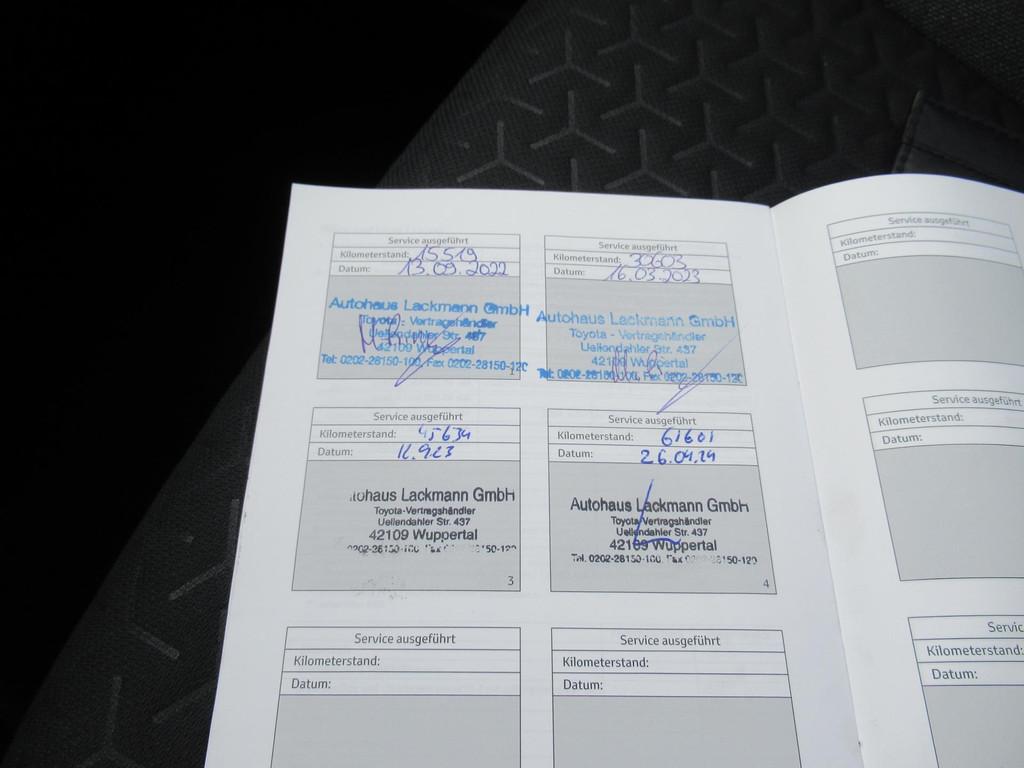 Service ausgeführt
Kilometerstand: 15519
Datum: 13.09.2022
Autohaus Lackmann GmbH
Toyota - Vertragshändler
Uellendahler Str. 437
42109 Wuppertal
Tel: 0202-28150-100, Fax 0202-28150-120
1
Service ausgeführt
Kilometerstand: 30603
Datum: 16.03.2023
Autohaus Lackmann GmbH
Toyota - Vertragshändler
Uellendahler Str. 437
42109 Wuppertal
Tel: 0202-28150-100, Fax 0202-28150-120
Service ausgeführt
Kilometerstand: 45634
Datum: 12.9.23
tohaus Lackmann GmbH
Toyota-Vertragshändler
Uellendahler Str. 437
42109 Wuppertal
0202-28150-100, Fax 150-120
3
Service ausgeführt
Kilometerstand: 61601
Datum: 26.04.24
Autohaus Lackmann GmbH
Toyota-Vertragshändler
Uellendahler Str. 437
42109 Wuppertal
Tel. 0202-28150-100, Fax 0202-28150-120
4
Service ausgeführt
Kilometerstand:
Datum:
Service ausgeführt
Kilometerstand:
Datum:
Service ausgeführt
Kilometerstand:
Datum:
Service ausgeführt
Kilometerstand:
Datum:
Servic
Kilometerstand:
Datum: